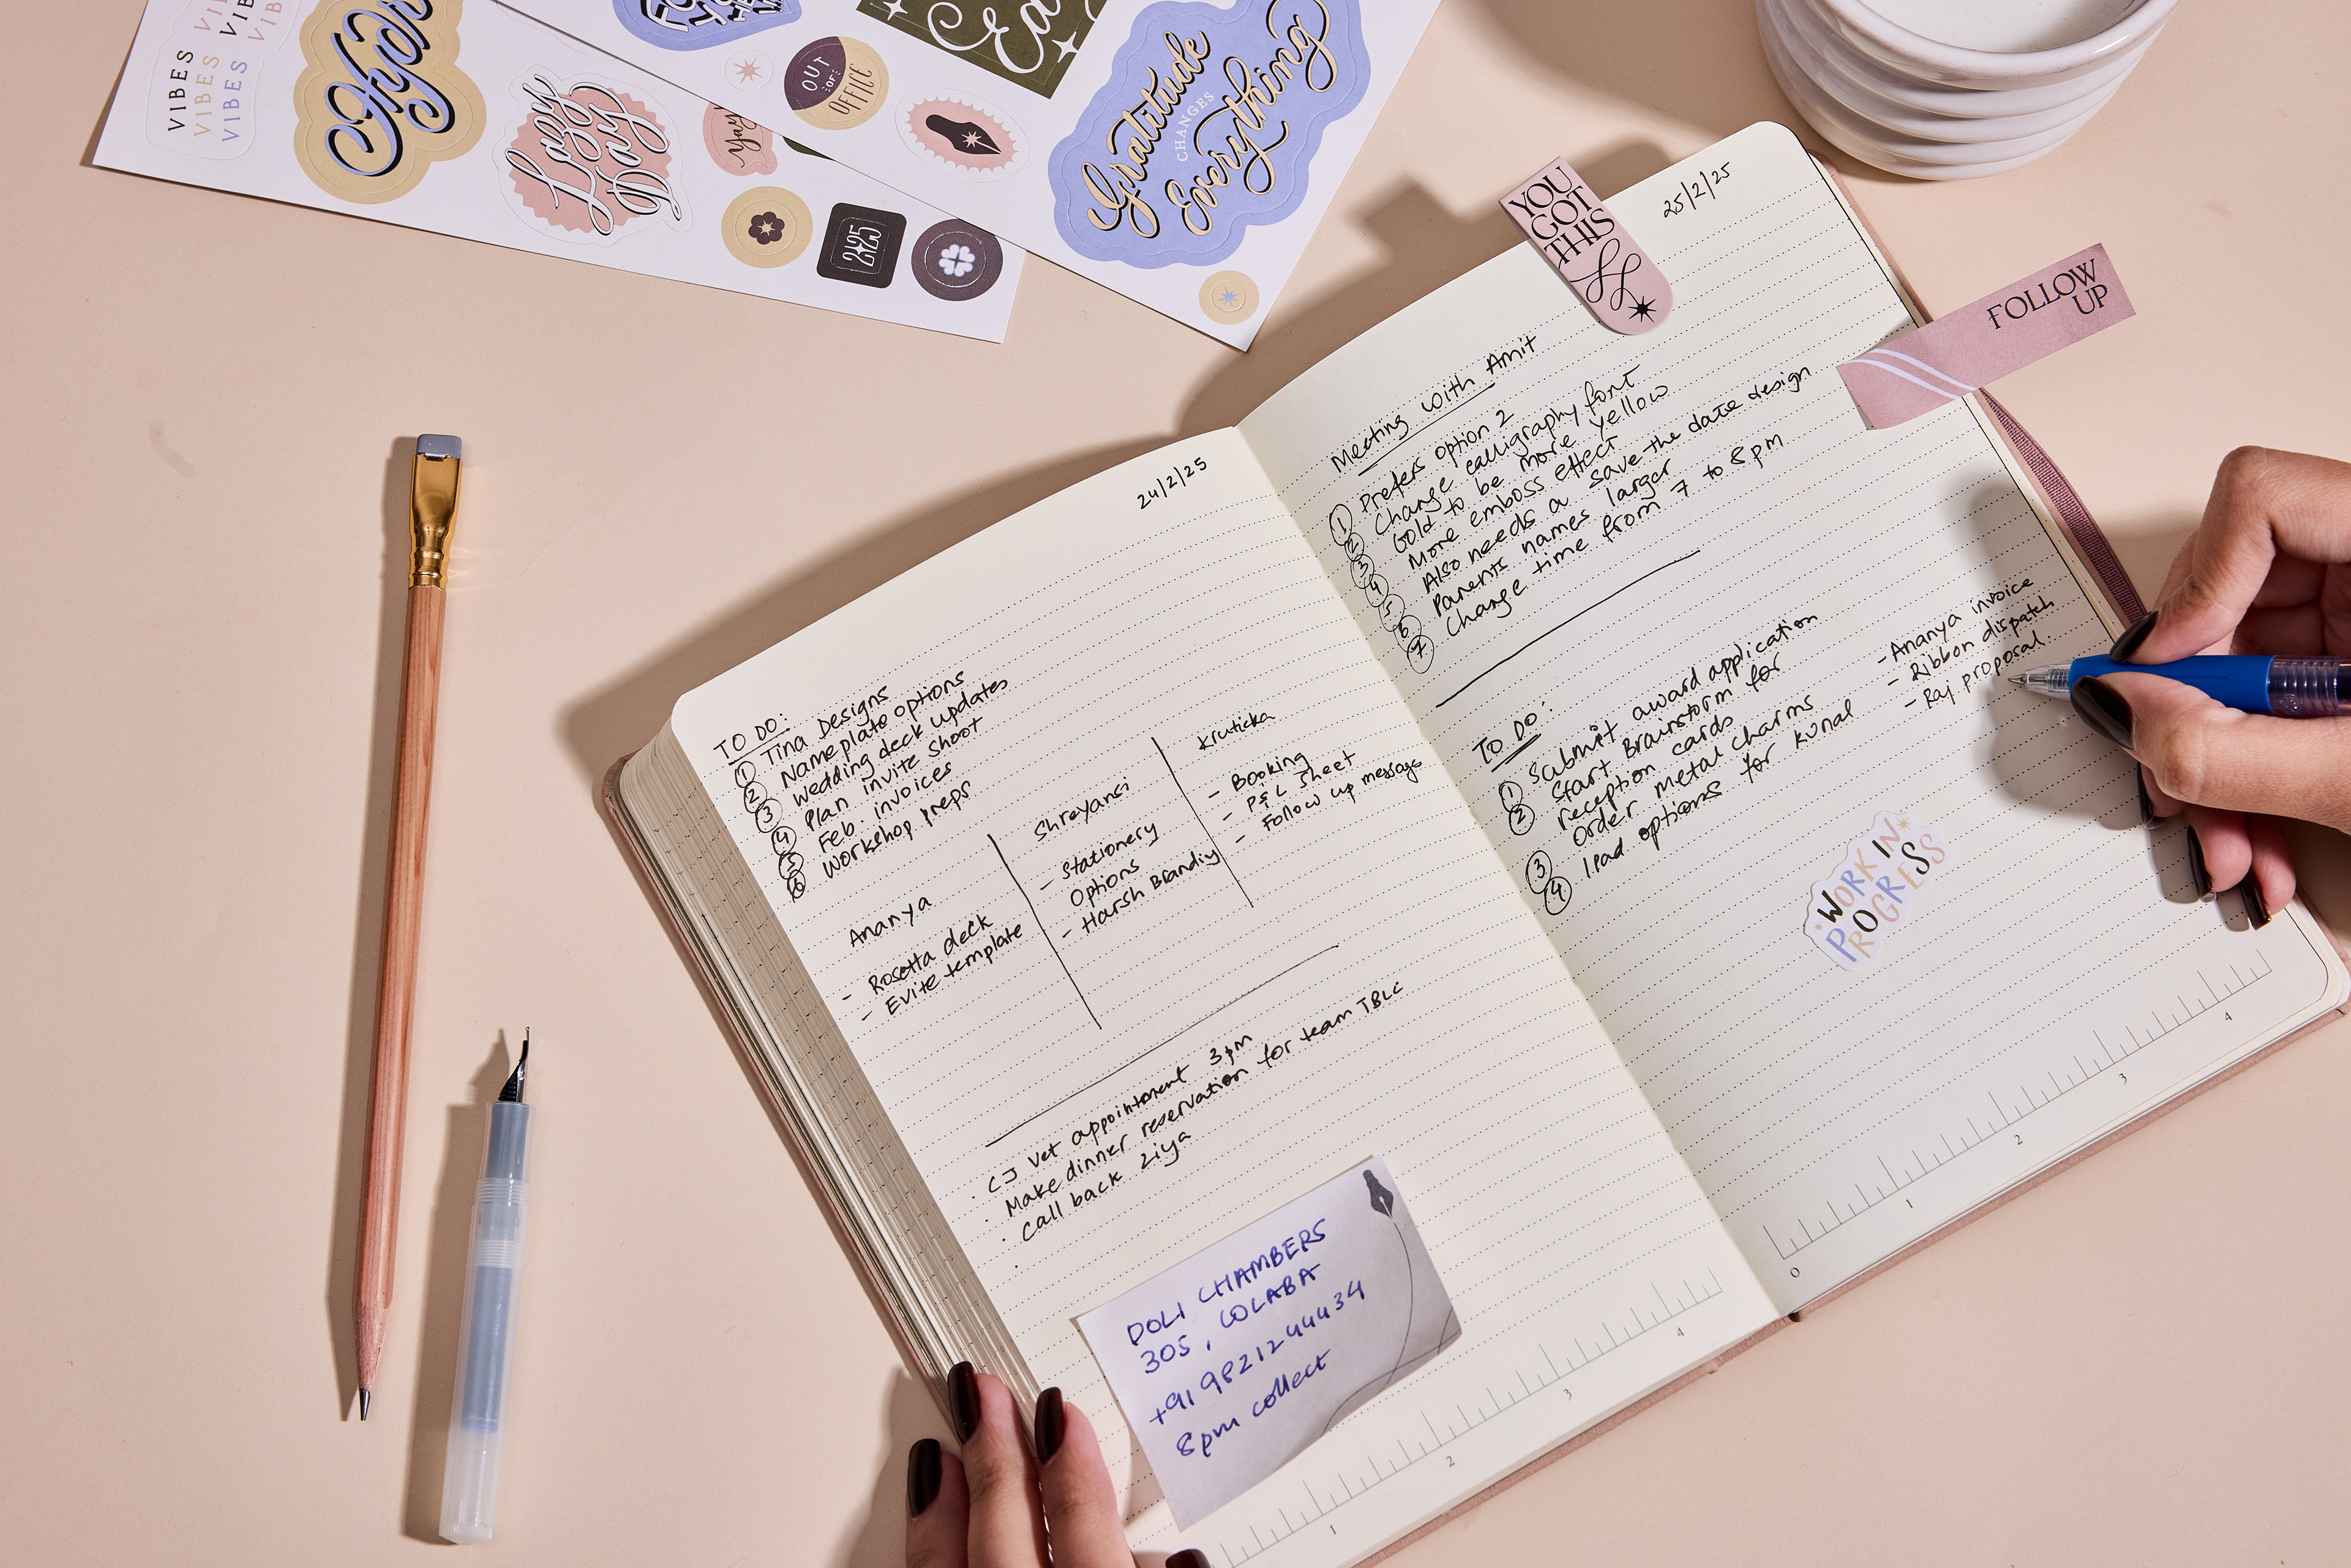 VIBES VIBES
VIBES VIBES
VIBES VIBES
Lazy
Day
Yay
2025
OUT
OF
OFFICE
Gratitude
CHANGES
Everything
24/2/25
TO DO:
1 Tina Designs
2 Nameplate options
3 Wedding deck updates
4 Plan invite shoot
5 Feb. invoices
6 Workshop preps
Ananya
- Rosetta deck
- Evite template
Shreyansi
- Stationery
Options
- Harsh Branding
Kruticka
- Booking
- P&L sheet
- Follow up message
· CJ vet appointment 3pm
· Make dinner reservation for team TBLC
· Call back Ziya
DOLI CHAMBERS
305, COLABA
+91 98212 44434
8pm collect
1 2 3 4
YOU
GOT
THIS
25/2/25
FOLLOW
UP
Meeting with Amit
1 Prefers option 2
2 Change calligraphy font
3 Gold to be more yellow
4 More emboss effect
5 Also needs a save the date design
6 Parents names larger
7 Change time from 7 to 8 pm
TO DO:
1 Submit award application
2 Start Brainstorm for
reception cards
3 Order metal charms
4 IPad options for Kunal
- Ananya invoice
- Ribbon dispatch
- Raj proposal.
WORK IN
PROGRESS
0 1 2 3 4